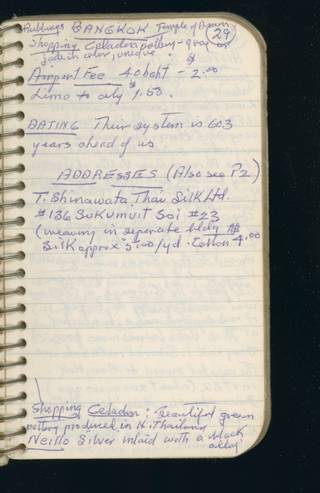 Rubbings BANGKOK Temple of Dawn 29
Shopping Celadon pottery - gray or
jadish color, unique.
Airport Fee 40 baht - $2.00
Limo to city $1.50.
DATING Their system is 603
years ahead of us
ADDRESSES (Also see P2)
T. Shinawata Thai Silk Ltd.
#136 Sukumuit Soi #23
(weaving in separate bldg
Silk approx $5.00/yd. Cotton 4.00
Shopping Celadon: Beautiful green
pottery produced in N. Thailand
Neillo Silver inlaid with a black
alloy